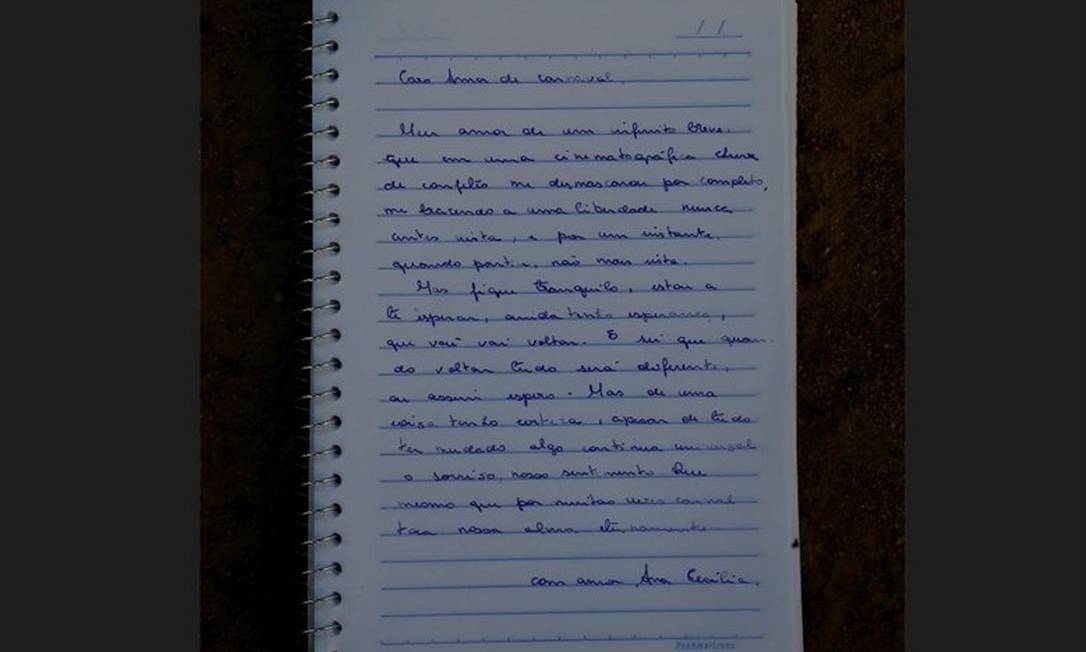 / /
Caro Amor de carnaval,
Meu amor de um infinito breve.
que em uma cinematográfica chuva
de confetes me desmascarou por completo,
me trazendo a uma liberdade nunca
antes vista, e por um instante.
quando partiu, não mais vista.
Mas fique tranquilo, estou a
te esperar, ainda tenho esperança,
que você vai voltar. E sei que quan-
do voltar tudo será diferente,
ou assim espero. Mas de uma
coisa tenho certeza, apesar de tudo
ter mudado algo continua universal
o sorriso, nosso sentimento
mesmo que por muitas vezes
nossa alma eternamente
com amor, Ana Cecília.